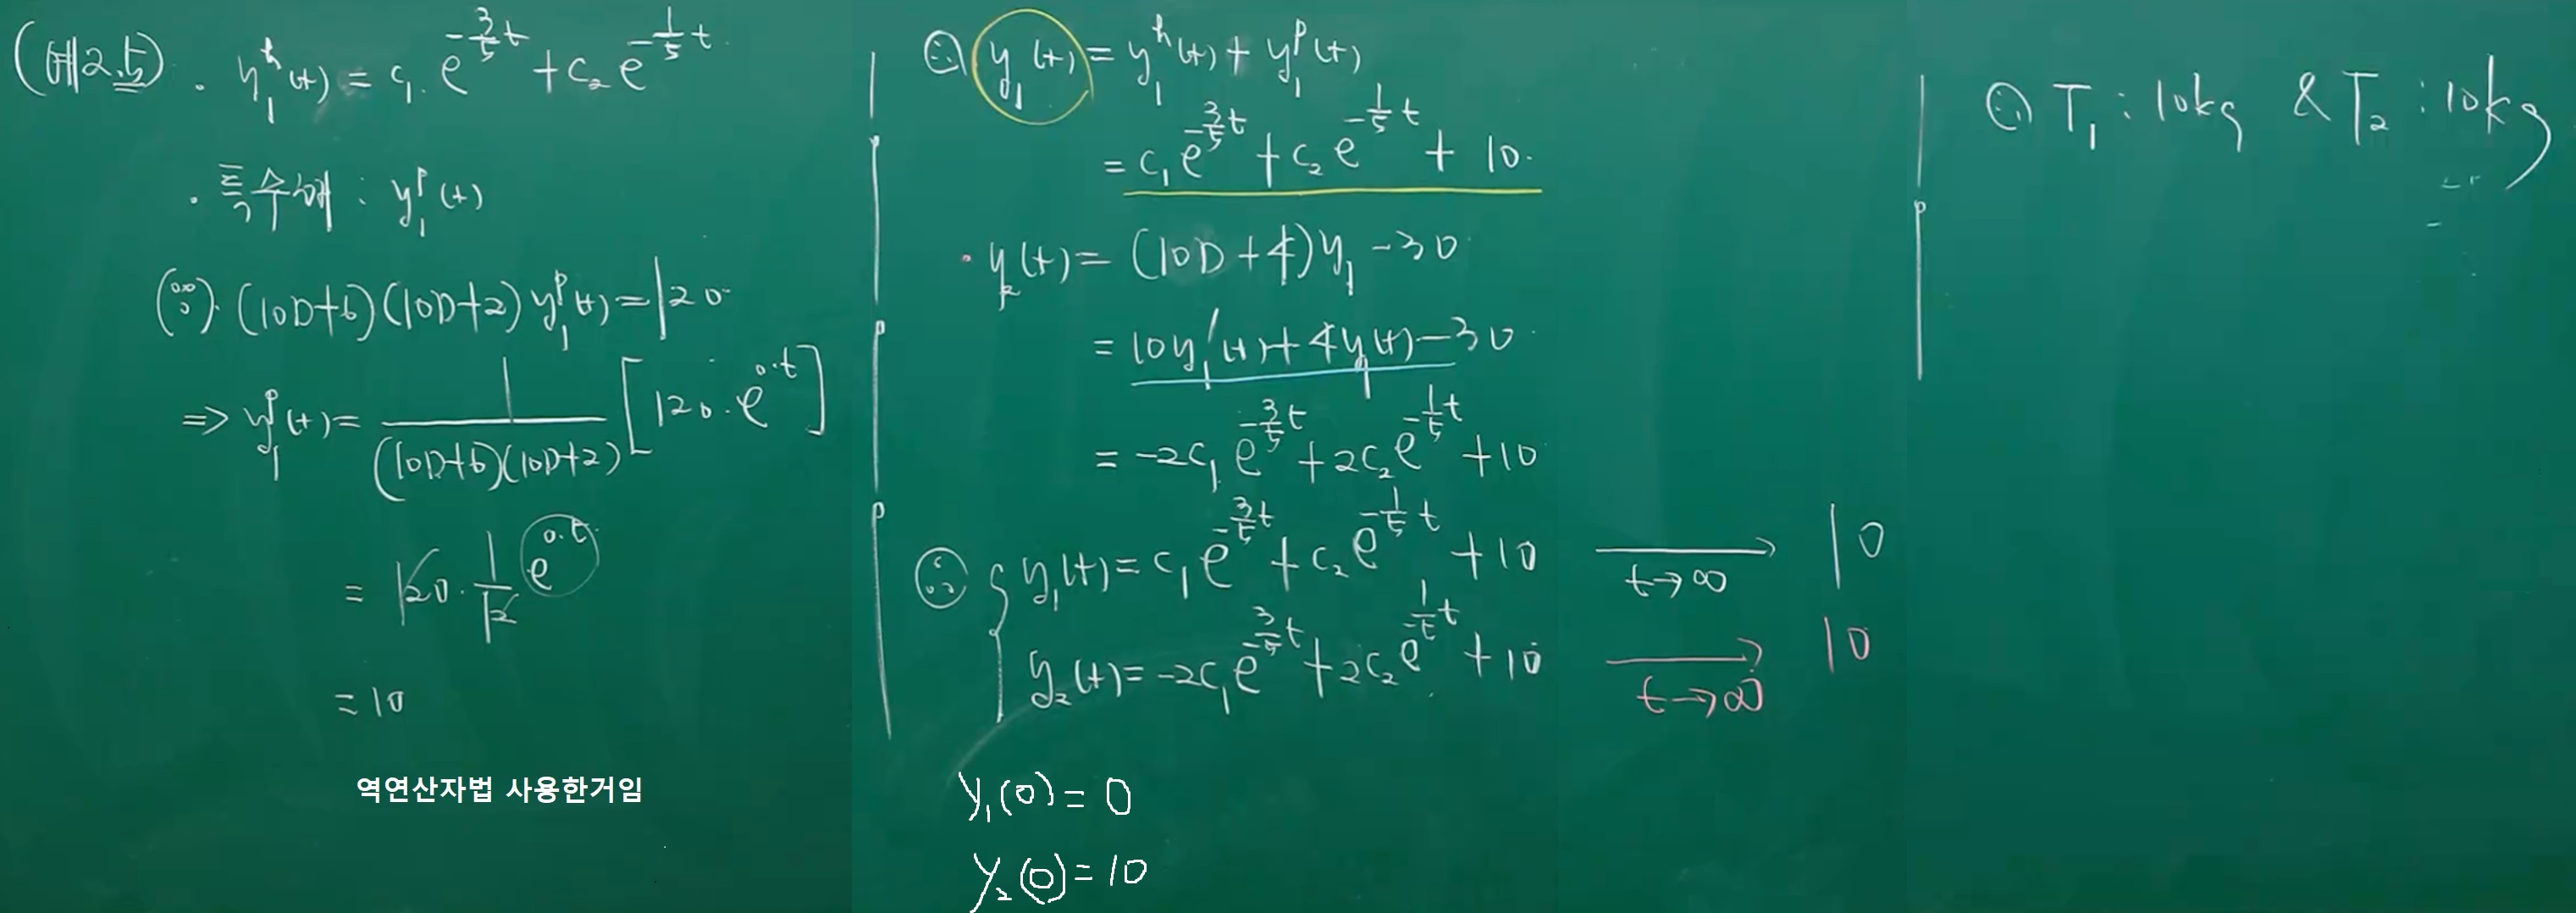 (예2.5) · y₁ʰ(t) = c₁ e^{-3/5 t} + c₂ e^{-1/5 t}
· 특수해 : y₁ᵖ(t)
(∵) · (10D+6)(10D+2) y₁ᵖ(t) = 120
⇒ y₁ᵖ(t) = 1/((10D+6)(10D+2)) [120 · e^{0·t}]
= 120 · 1/12 e^{0·t}
= 10
역연산자법 사용한거임
∴ y₁(t) = y₁ʰ(t) + y₁ᵖ(t)
= c₁ e^{-3/5 t} + c₂ e^{-1/5 t} + 10
· y₂(t) = (10D+4)y₁ - 30
= 10y₁'(t) + 4y₁(t) - 30
= -2c₁ e^{-3/5 t} + 2c₂ e^{-1/5 t} + 10
∴ { y₁(t) = c₁ e^{-3/5 t} + c₂ e^{-1/5 t} + 10 ⟶ t→∞ 10
y₂(t) = -2c₁ e^{-3/5 t} + 2c₂ e^{-1/5 t} + 10 ⟶ t→∞ 10
y₁(0) = 0
y₂(0) = 10
∴ T₁ : 10kg & T₂ : 10kg